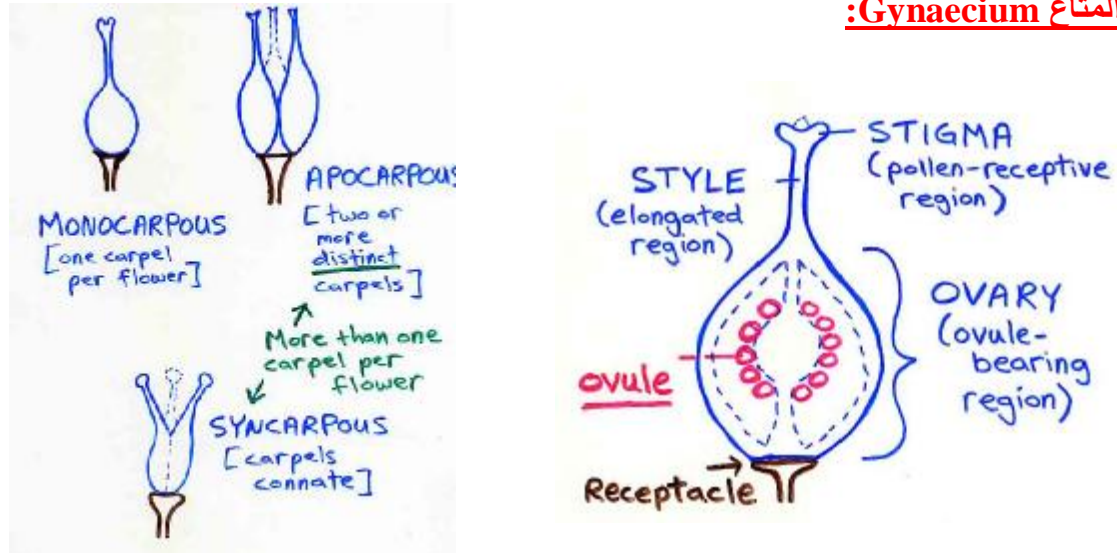 المتاع Gynaecium:
MONOCARPOUS
[one carpel
per flower]
APOCARPOUS
[two or
more
distinct
carpels]
More than one
carpel per
flower
SYNCARPOUS
[carpels
connate]
STIGMA
(pollen-receptive
region)
STYLE
(elongated
region)
OVARY
(ovule-
bearing
region)
ovule
Receptacle